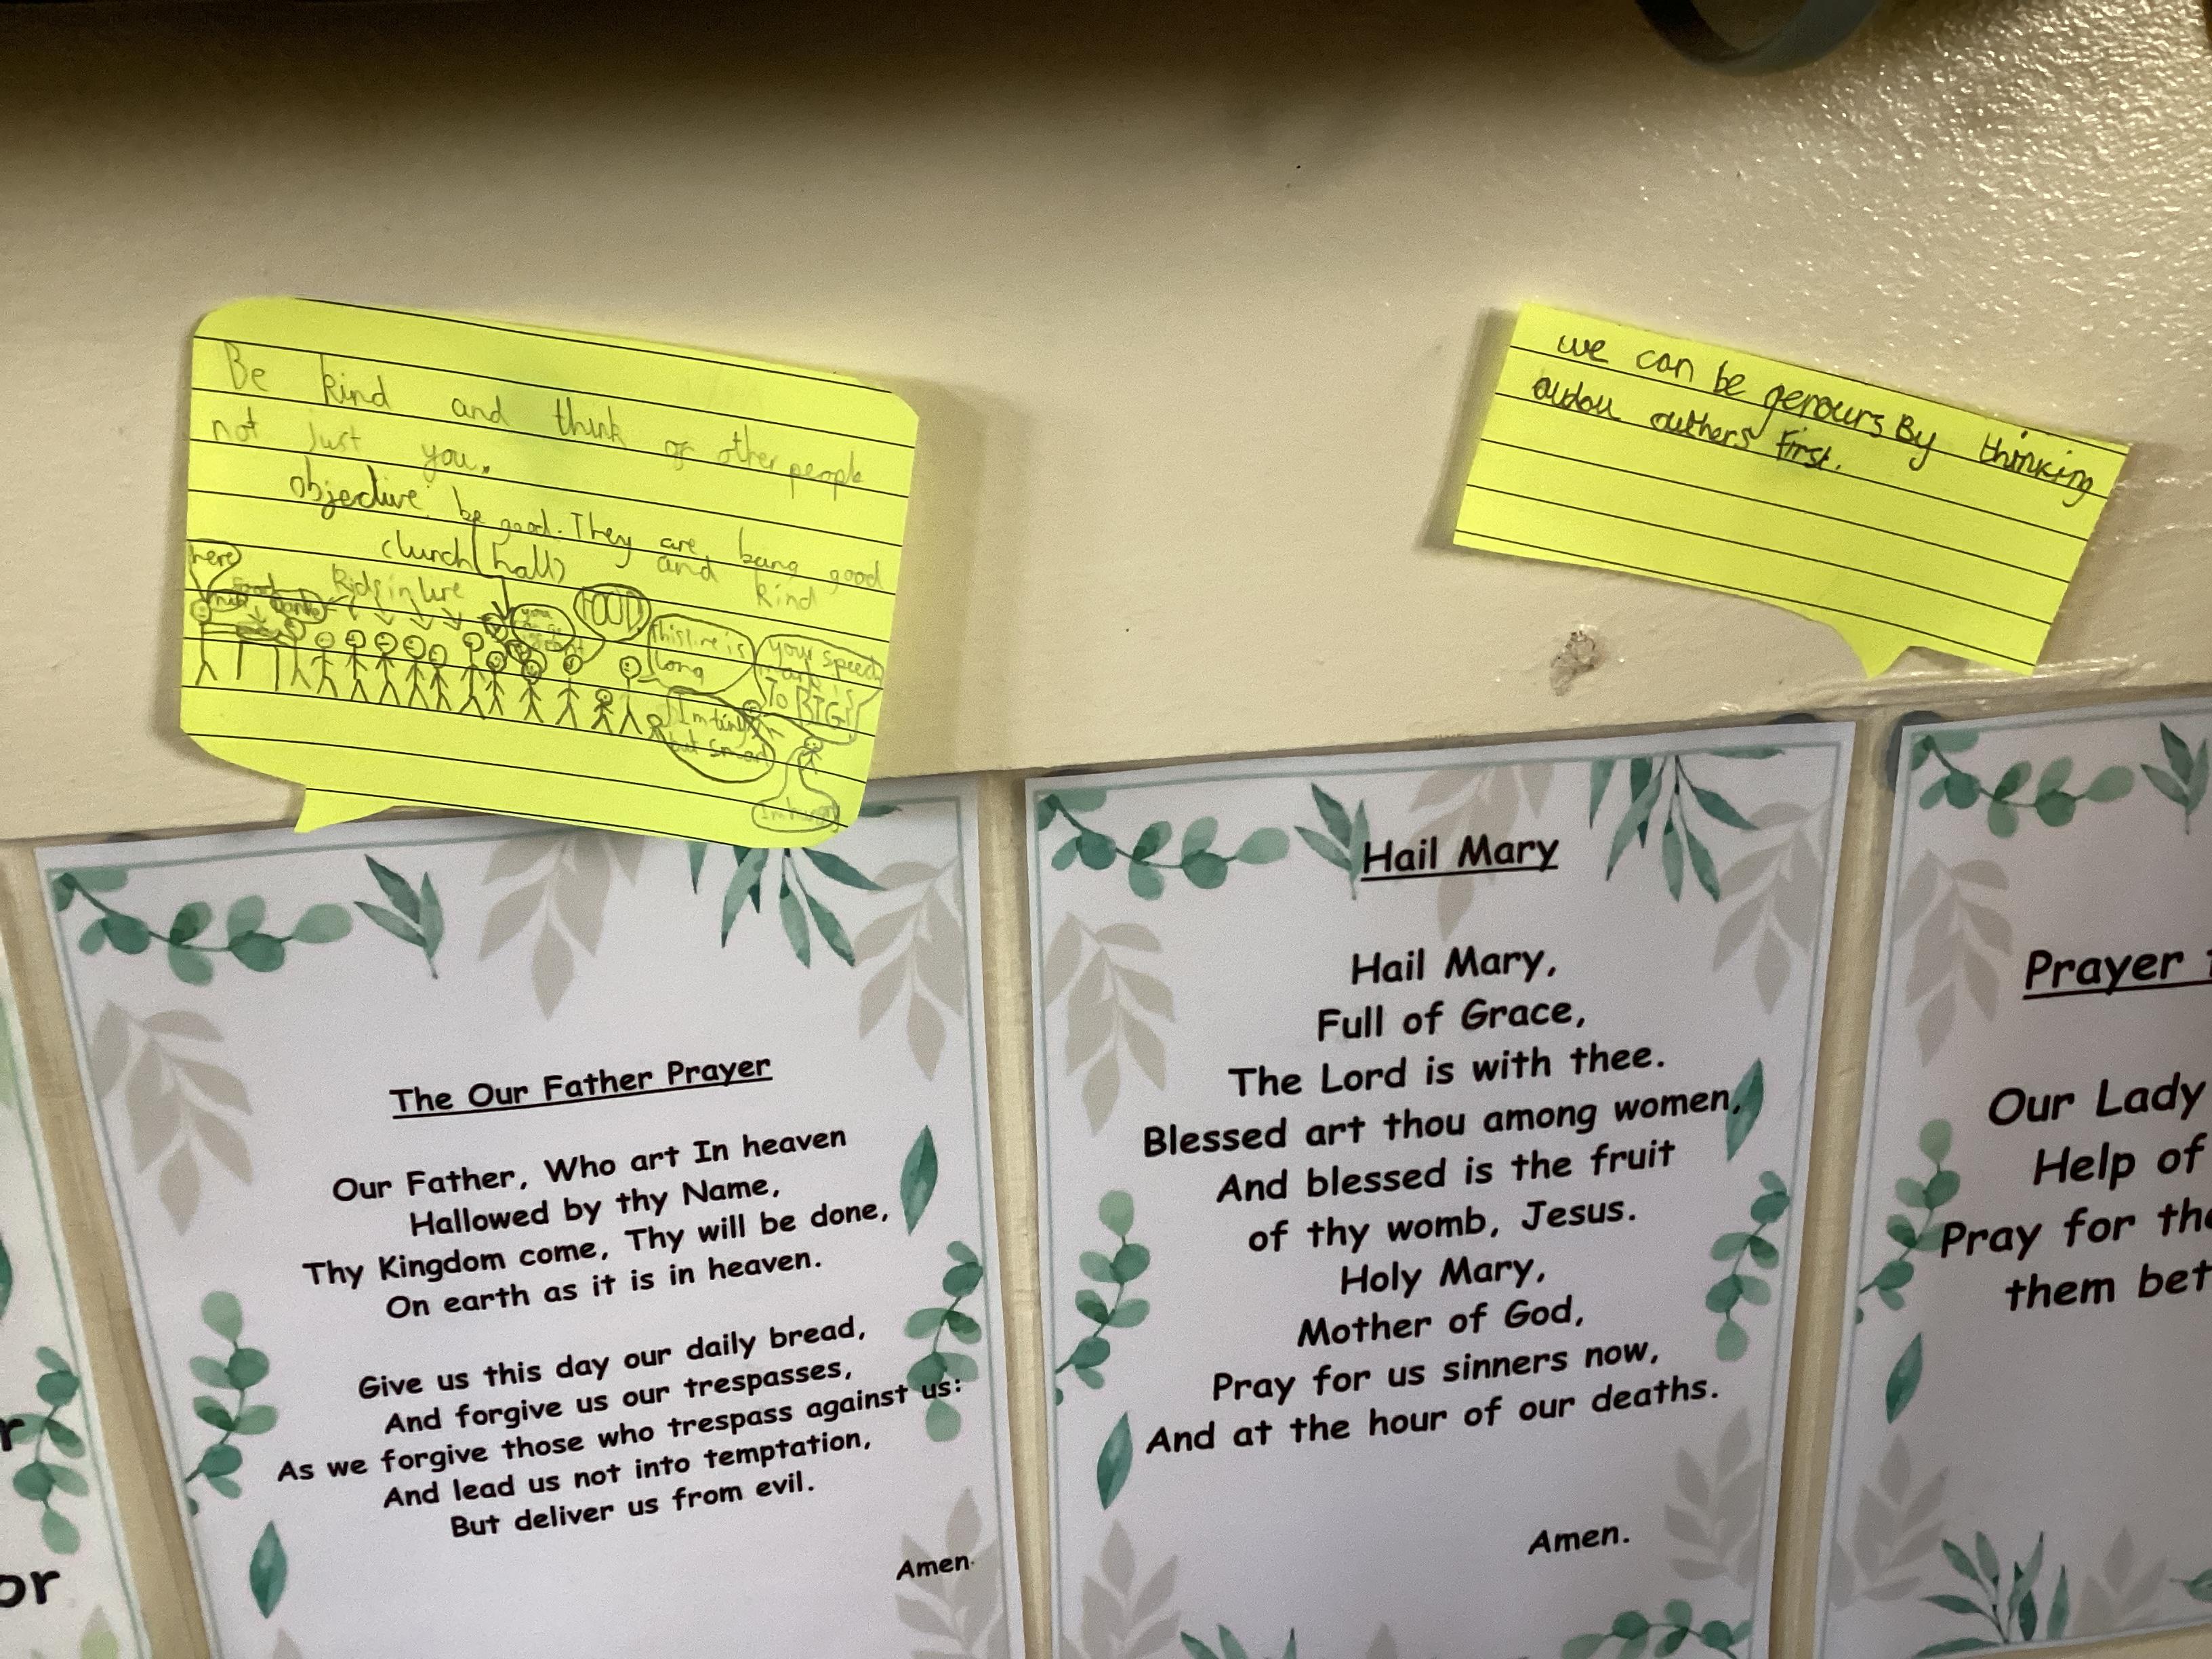 Be kind and think of other people
not just you.
objective: be good. They are being good
(lunch hall) and kind
here
Food
Kids in line
FOOD!
This line is
long
your speech
mark is
To BIG!
I'm tiny
but smart
I'm hungry
we can be gerours By thinking
audou outhers first.
The Our Father Prayer
Our Father, Who art In heaven
Hallowed by thy Name,
Thy Kingdom come, Thy will be done,
On earth as it is in heaven.
Give us this day our daily bread,
And forgive us our trespasses,
As we forgive those who trespass against us:
And lead us not into temptation,
But deliver us from evil.
Amen.
Hail Mary
Hail Mary,
Full of Grace,
The Lord is with thee.
Blessed art thou among women,
And blessed is the fruit
of thy womb, Jesus.
Holy Mary,
Mother of God,
Pray for us sinners now,
And at the hour of our deaths.
Amen.
Prayer
Our Lady
Help of
Pray for
them
or